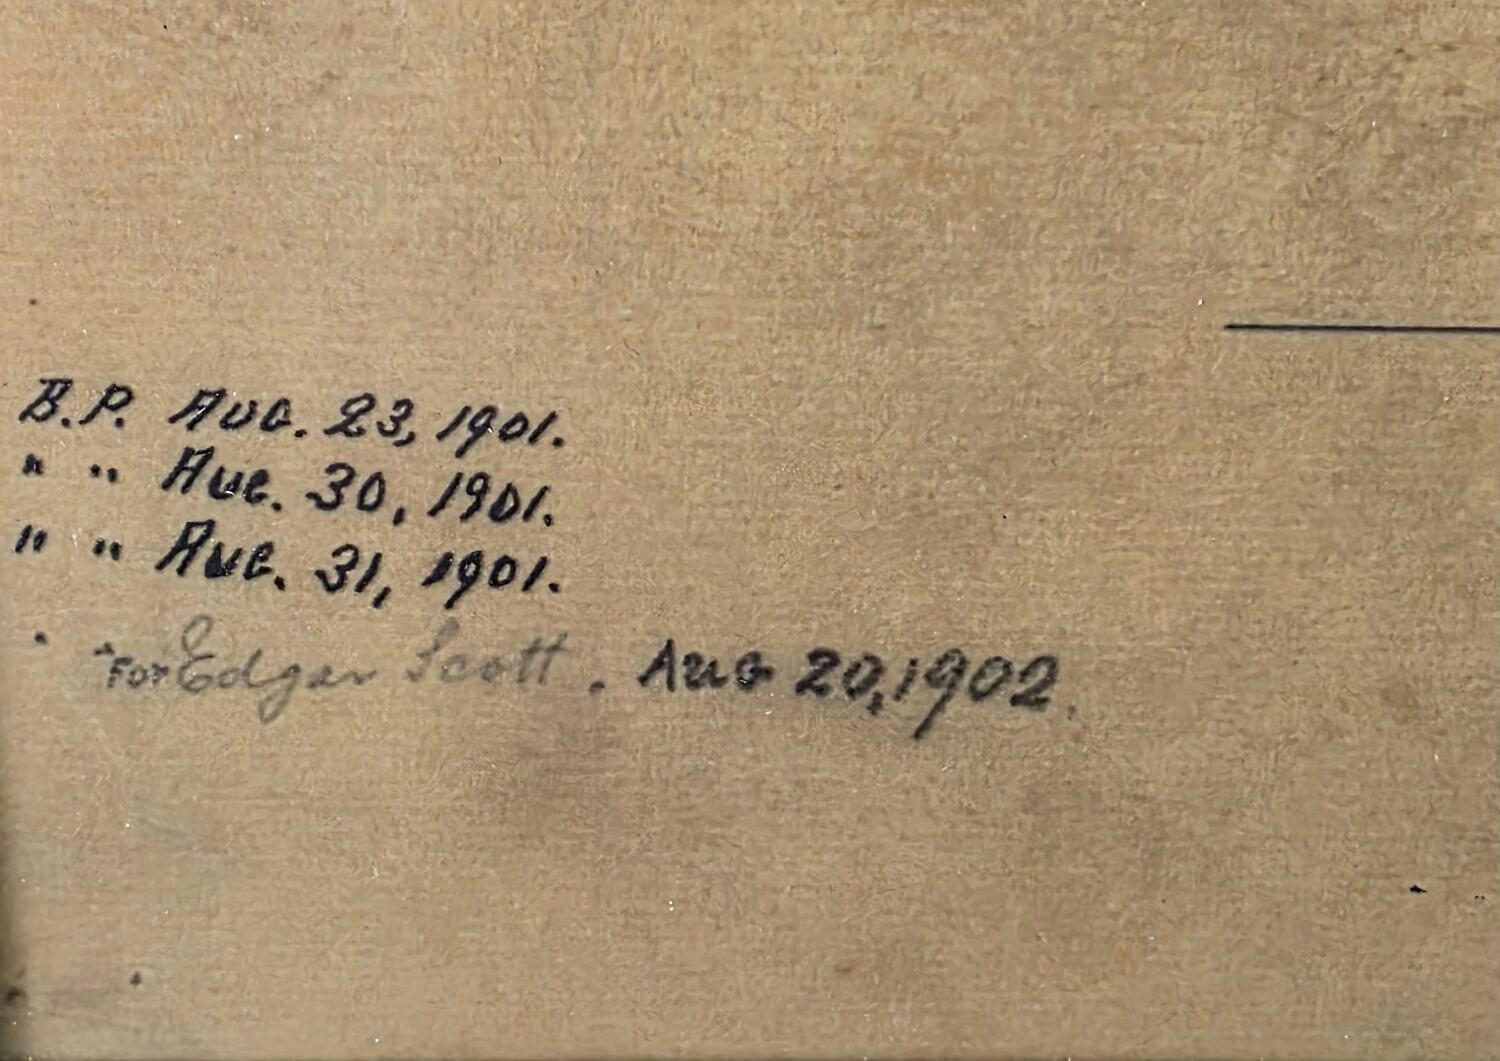 B.P. Aug. 23, 1901.
" " Aug. 30, 1901.
" " Aug. 31, 1901.
" " For Edgar Scott. Aug 20, 1902.